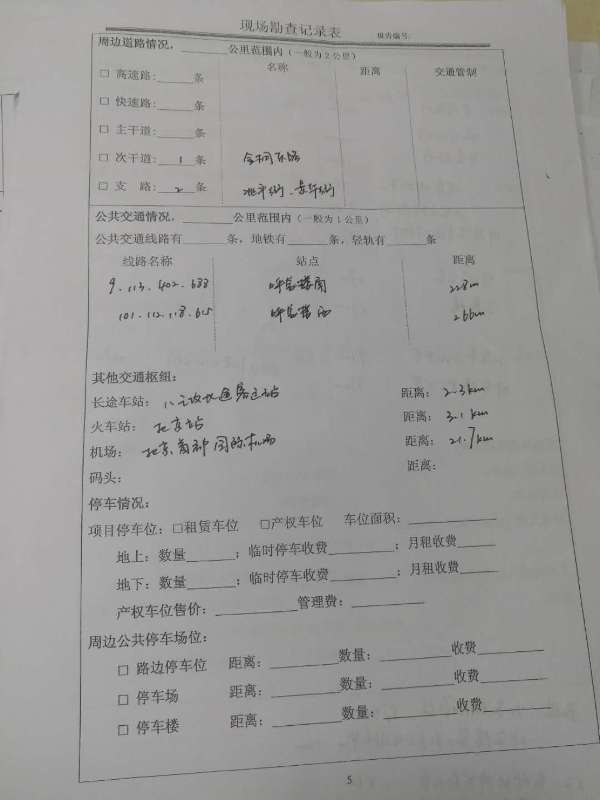 现场勘查记录表 报告编号:
周边道路情况,______公里范围内(一般为2公里)
名称 距离 交通管制
□ 高速路:______条
□ 快速路:______条
□ 主干道:______条
□ 次干道: 1 条
□ 支 路: 2 条
公共交通情况,______公里范围内(一般为1公里)
公共交通线路有______条,地铁有______条,轻轨有______条
线路名称 站点 距离
9.113.402.688 呼家楼南 228m
101.112.118.615 呼家楼西 266m
其他交通枢纽:
长途车站: 客运站 距离: 2.3km
火车站: 北京站 距离: 3.1km
机场: 北京首都国际机场 距离: 21.7km
码头: 距离:
停车情况:
项目停车位:□租赁车位 □产权车位 车位面积:______
地上:数量______;临时停车收费______;月租收费______
地下:数量______;临时停车收费______;月租收费______
产权车位售价:______管理费:______
周边公共停车场位:
□ 路边停车位 距离:______数量:______收费______
□ 停车场 距离:______数量:______收费______
□ 停车楼 距离:______数量:______收费______
5